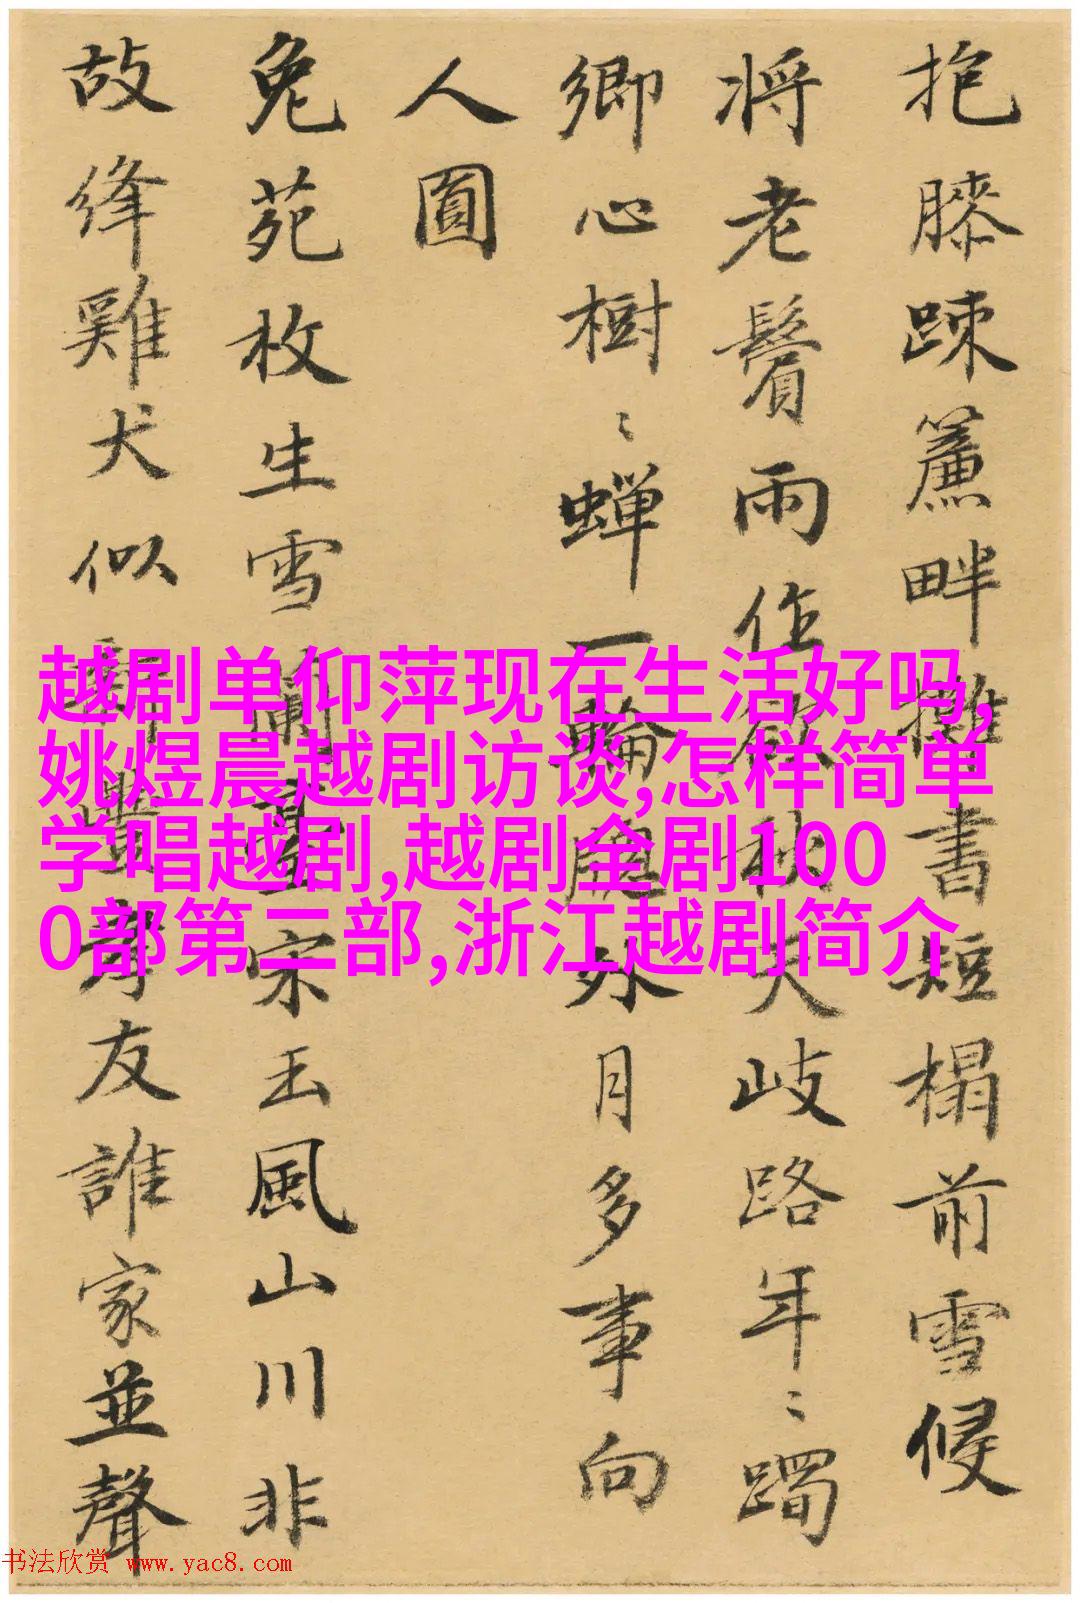 抱膝踈簾畔攤書短榻前雪候
将老鬢雨作欲秋天岐路年〻躅
鄉心樹〻蟬一輪外月多事向
人圓
兔苑枚生雪蘭臺宋玉風山川非
故絳雞犬似新豐友誰家並聲
越剧单仰萍现在生活好吗,
姚煜晨越剧访谈,怎样简单
学唱越剧,越剧全剧100
0部第二部,浙江越剧简介
书法欣赏 www.yac8.com